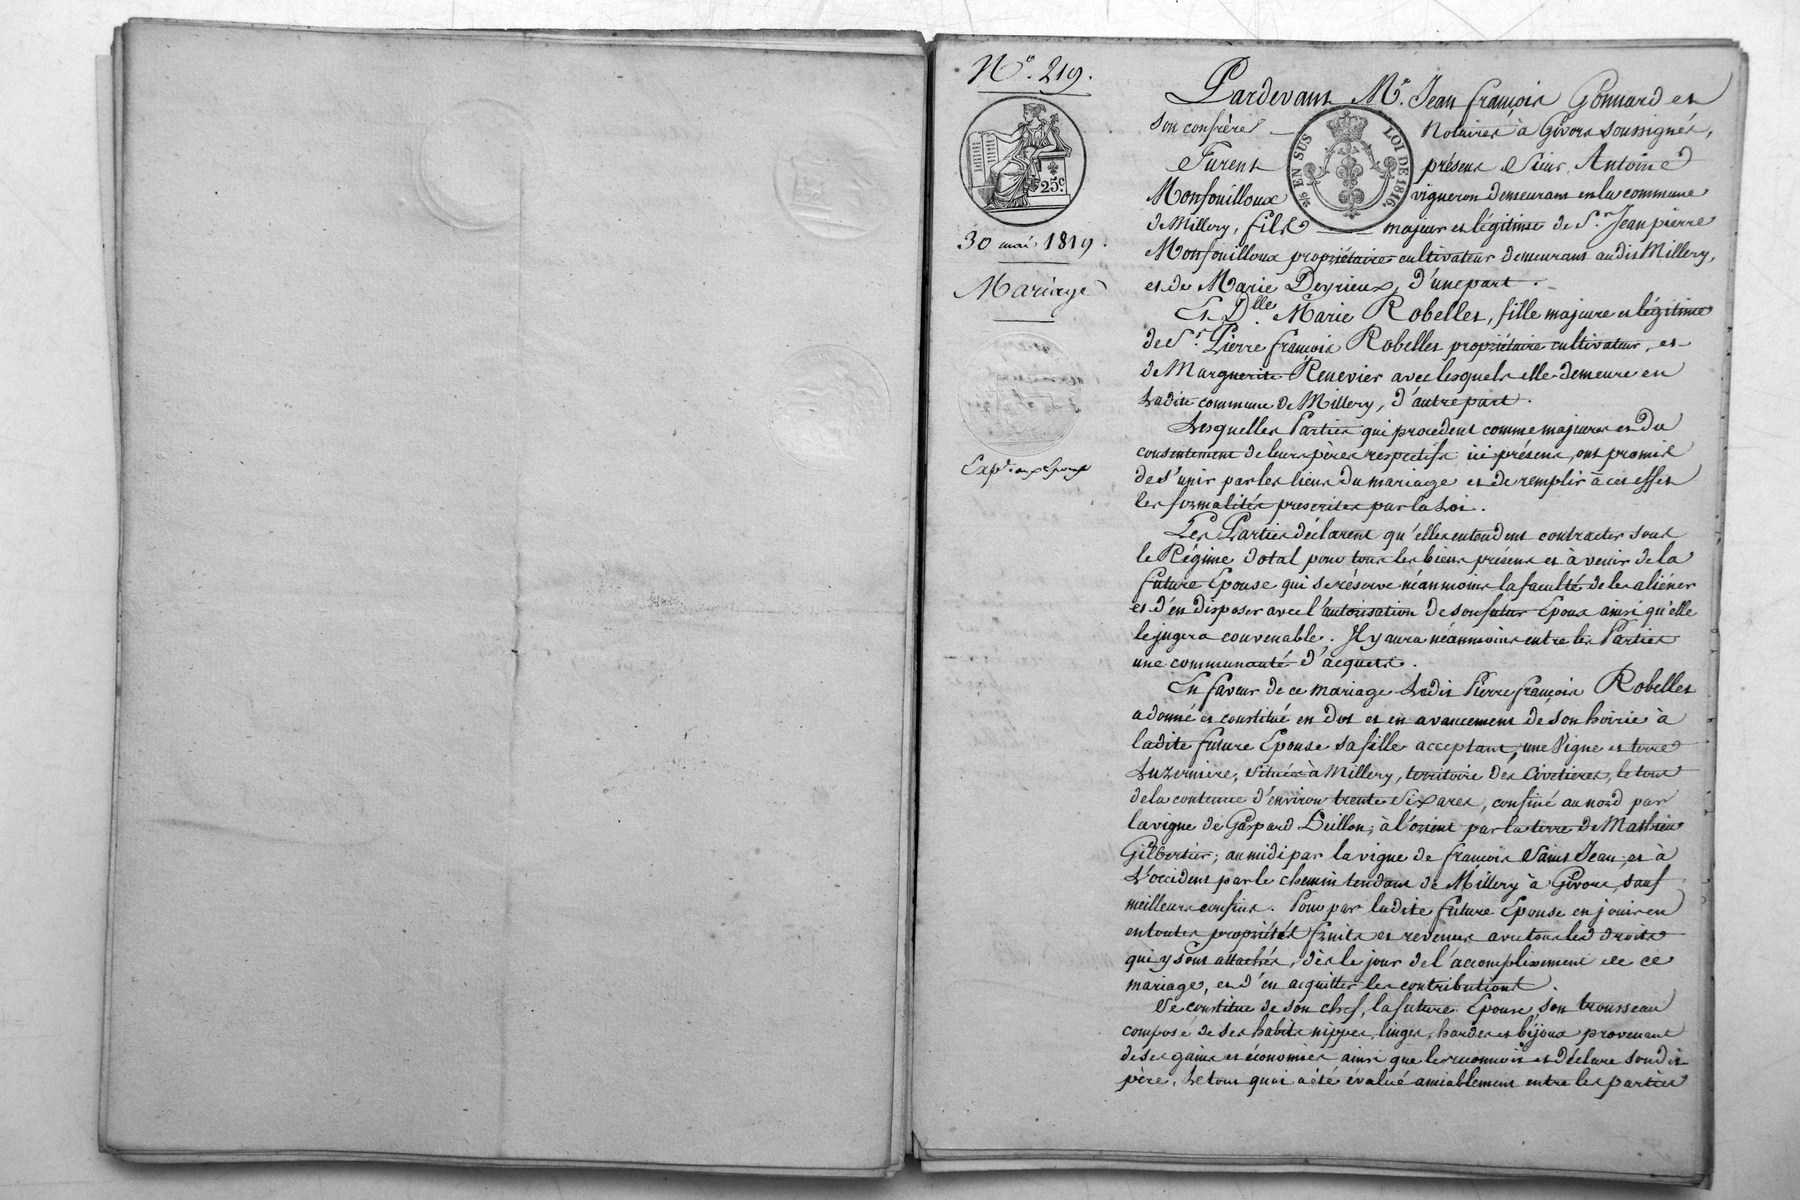 N.° 219.
25c
30 mai 1819.
Mariage
Exp.on aux Epoux
2/5 EN SUS LOI DE 1816.
Pardevant M.e Jean françois Gonnard et
son confrère notaires à Givors soussignés,
Furent présens Sieur Antoine
Monfouilloux vigneron demeurant en la commune
de Millery, fils majeur et légitime de S.r Jean pierre
Monfouilloux propriétaire cultivateur demeurant audit Millery,
et de Marie Deyrieux, d'une part.
Et D.lle Marie Robelles, fille majeure et légitime
de S.r Pierre françois Robelles propriétaire cultivateur, et
de Marguerite Renevier avec lesquels elle demeure en
ladite commune de Millery, d'autre part.
Lesquelles Parties qui procedent comme majeures et du
consentement de leurs pères respectifs ici présens, ont promis
de s'unir par les liens du mariage et de remplir à cet effet
les formalités prescrites par la Loi.
Les Parties déclarent qu'elles entendent contracter sous
le Régime dotal pour tous les biens présens et à venir de la
future Epouse qui se réserve néanmoins la faculté de les aliéner
et d'en disposer avec l'autorisation de son futur Epoux ainsi qu'elle
le jugera convenable. Il y aura néanmoins entre les Parties
une communauté d'acquets.
En faveur de ce mariage Ledit Pierre françois Robelles
a donné et constitué en dot et en avancement de son hoirie à
ladite future Epouse sa fille acceptant, une Vigne et terre
Luzerniere, située à Millery, territoire des , le tout
de la contenue d'environ trente Six ares, confiné au nord par
la vigne de Gaspard Deillon; à l'orient par la terre de Mathieu
Gilbertier; au midi par la vigne de françois Saint Jean, et à
L'occident par le chemin tendant de Millery à Givors, sauf
meilleurs confins. Pour par ladite future Epouse en jouir en
en toutes propriétés fruits et revenus avec tous les droits
qui y sont attachés, dès le jour de l'accomplissement de ce
mariage, et d'en acquitter les contributions.
Se constitue de son chef, la future Epouse, son trousseau
composé de ses habits nippes, linges, hardes et bijoux provenant
de ses gains et économies ainsi que le reconnoit et déclare son dit
père, Le tout quoi a été évalué amiablement entre les parties